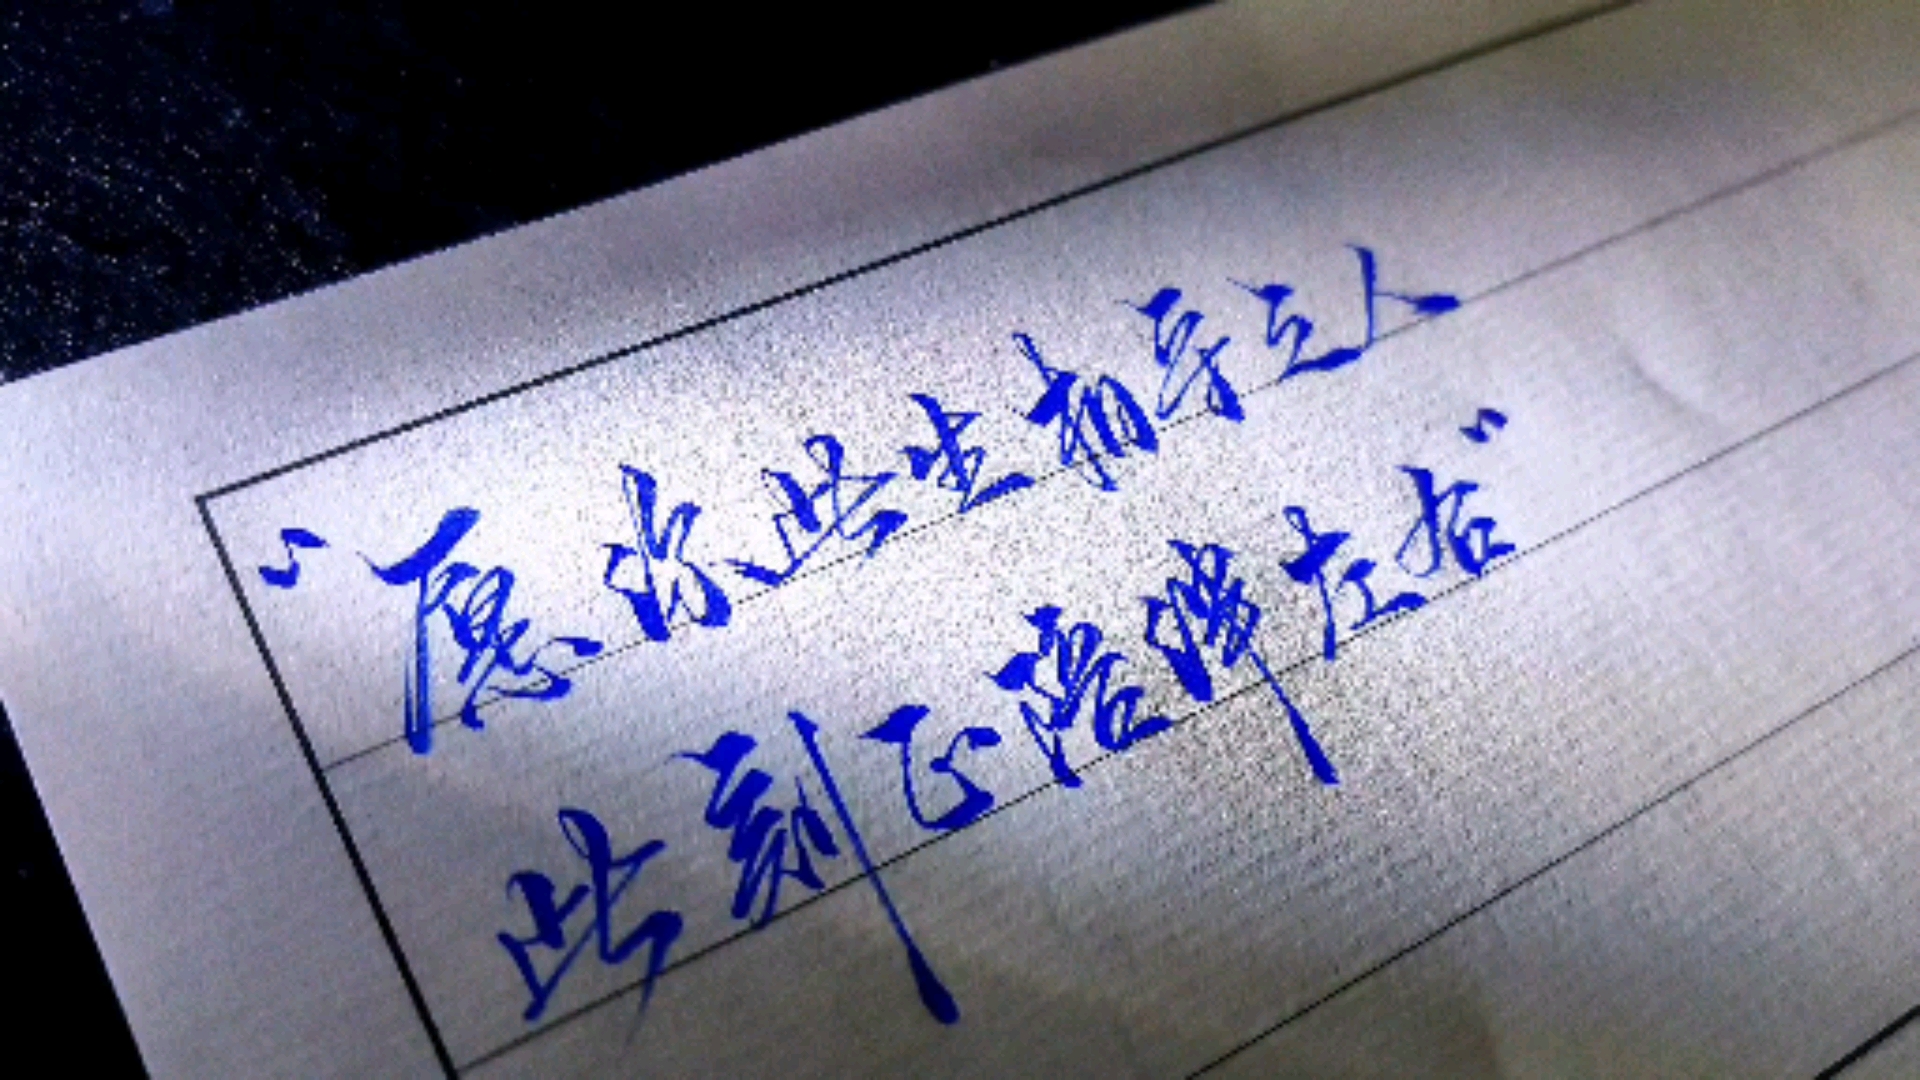 “愿你此生相守之人
此刻正陪伴左右”